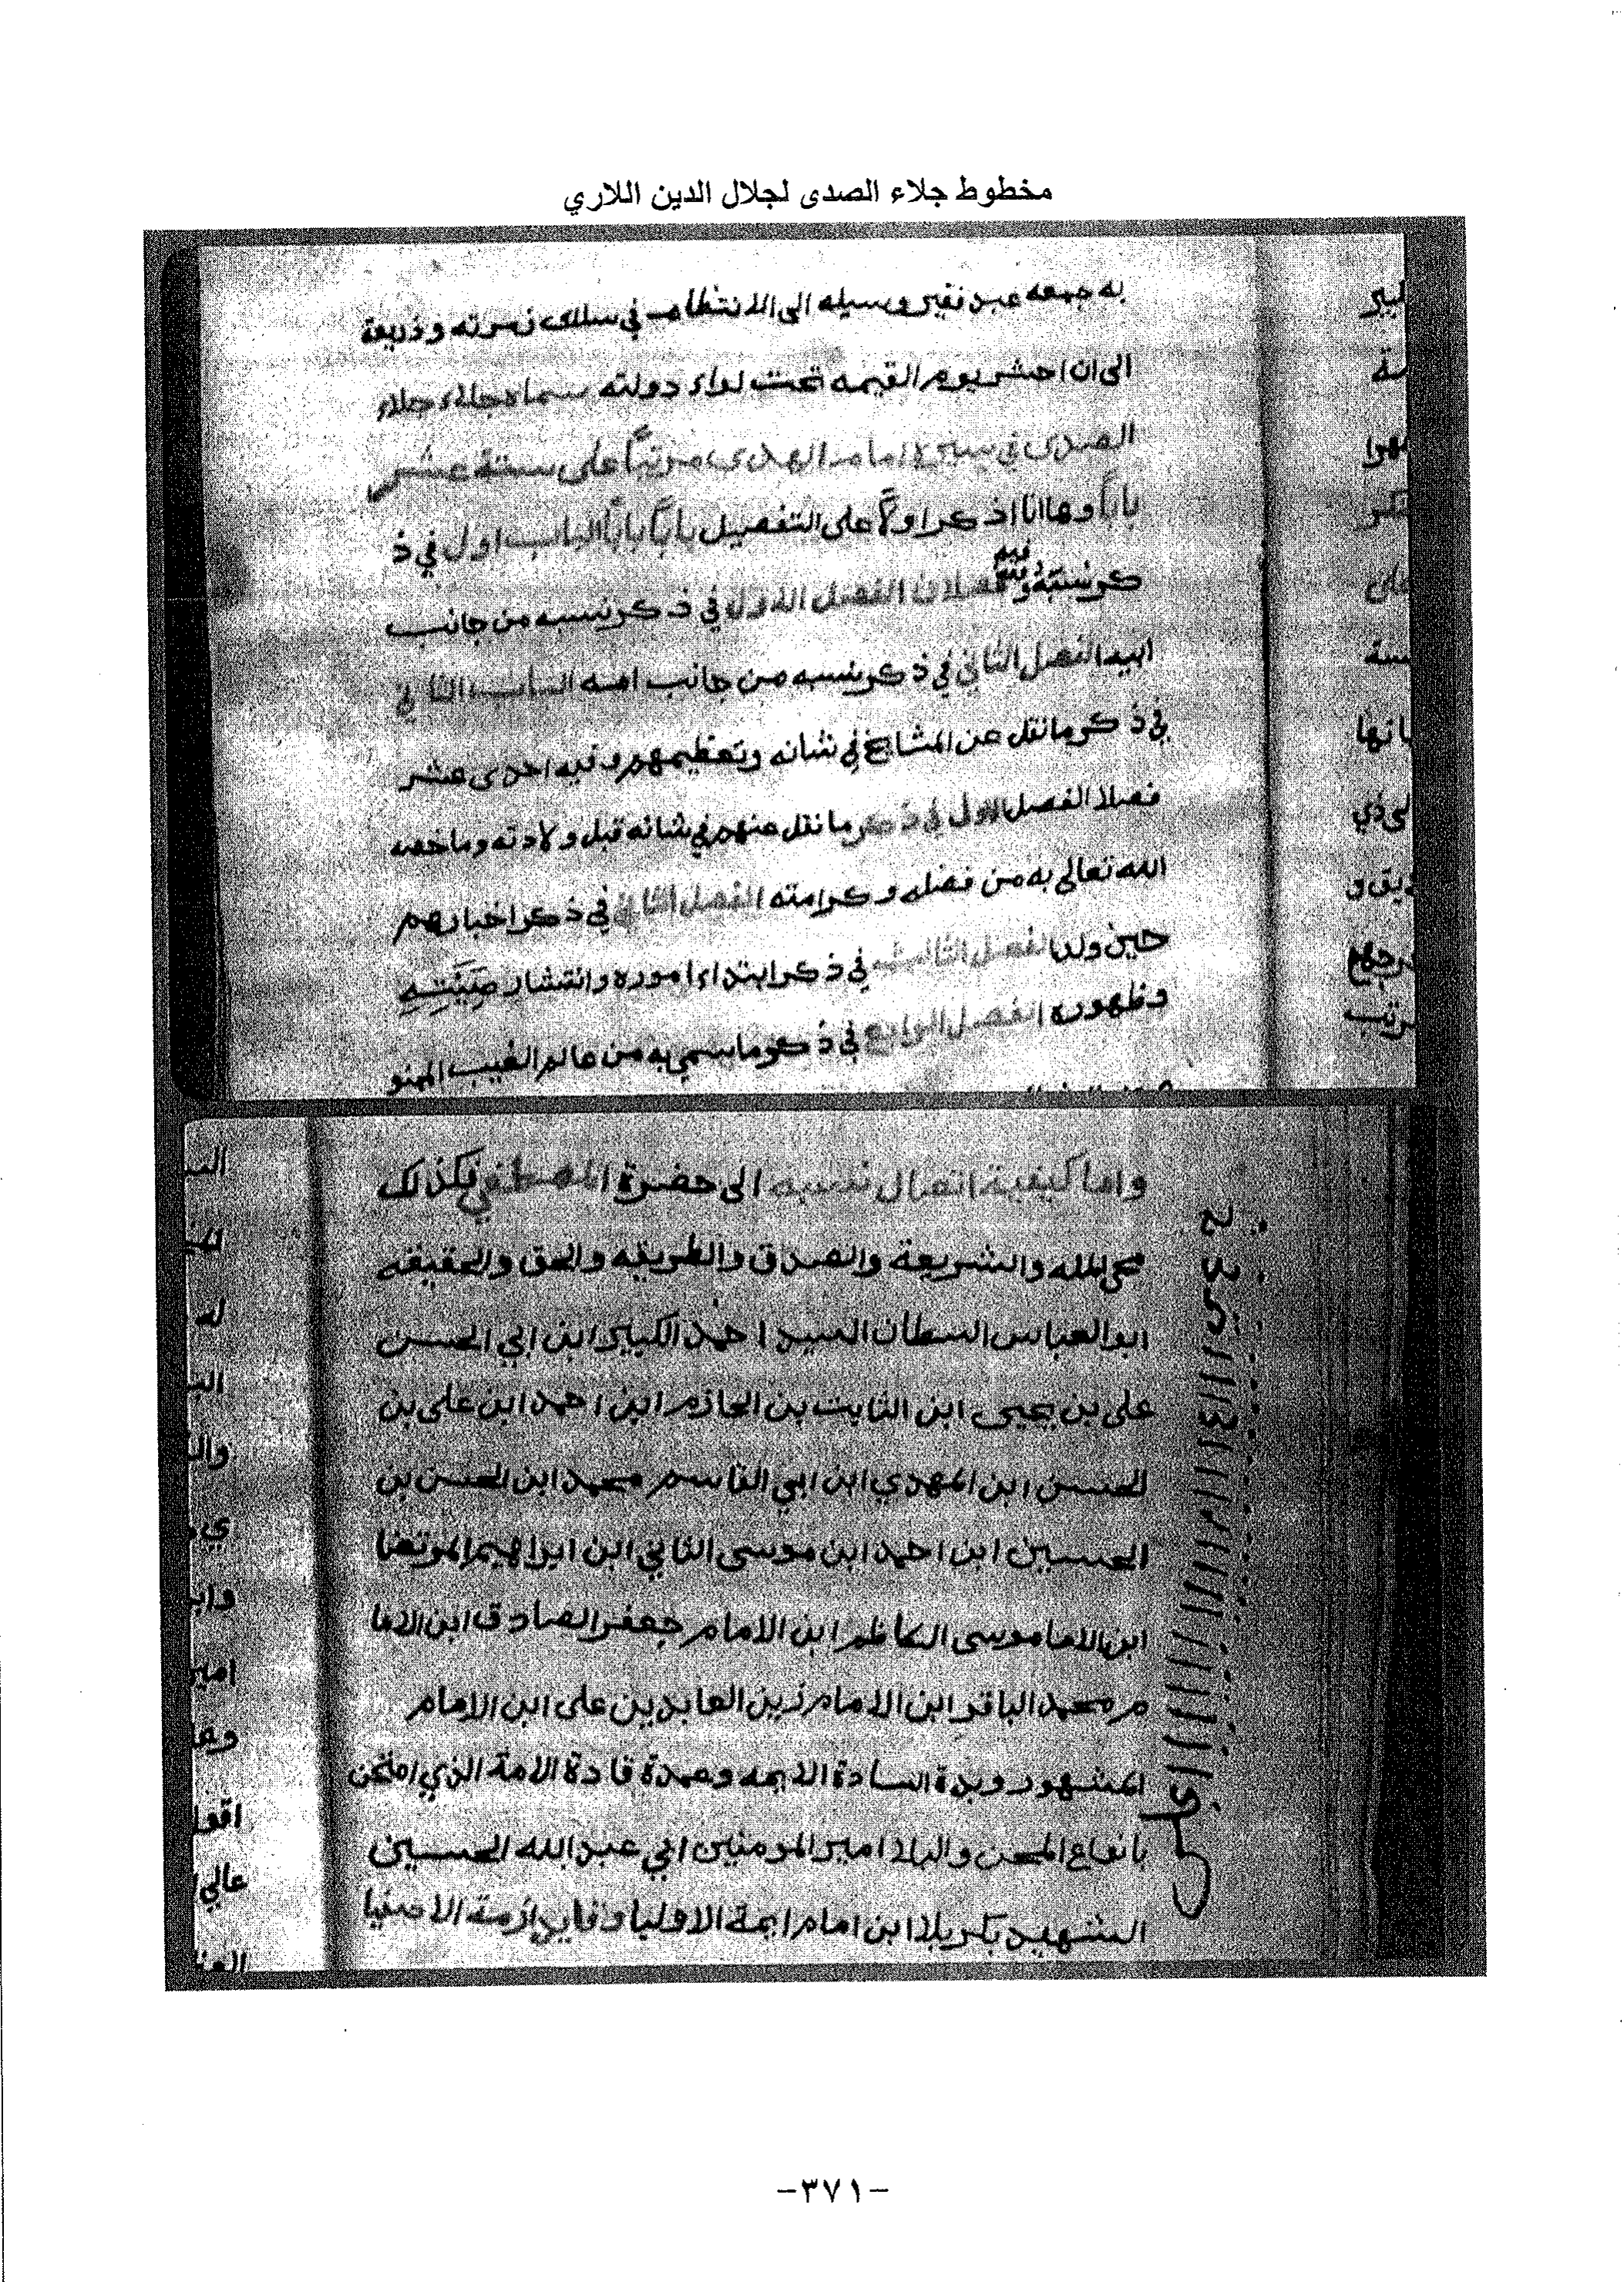 مخطوط جلاء الصدى لجلال الدين اللاري
به جمعه عبد فقير وسيله الى الانتظام في سلك زمرته وذريعة
الى ان احشر يوم القيمه تحت لواء دولته سماه جلاء
الصدى في سيرة امام الهدى مرتباً على ستة عشر
باباً وها انا اذكر اولاً على التفصيل باباً باباً الباب اول في ذ
كر نسبه وفيه فصلان الفصل الاول في ذكر نسبه من جانب
فيه
ابيه الفصل الثاني في ذكر نسبه من جانب امه الباب الثاني
في ذكر ما نقل عن المشايخ في شانه وتعظيمهم وفيه احدى عشر
فصلا الفصل الاول في ذكر ما نقل عنهم في شانه قبل ولادته وما خصه
الله تعالى به من فضله وكرامته الفصل الثاني في ذكر اخبارهم
حين ولد الفصل الثالث في ذكر ابتداء اموره وانتشار صيته
وظهوره الفصل الرابع في ذكر ما سمي به من عالم الغيب
لبير
ى ذي
يق و
رتب
واما كيفية اتصال نسبه الى حضرة المصطفي فكذلك
محي المله والشريعة والصدق والطريقه والحق والحقيقه
ابو العباس السطان السيد احمد الكبير ابن ابي الحسن
على بن يحيى ابن الثابت بن الحازم ابن احمد ابن على بن
الحسن ابن المهدي ابن ابي القاسم محمد ابن الحسن بن
الحسين ابن احمد ابن موسى الثاني ابن ابراهيم المرتضا
ابن الاما موسى الكاظم ابن الامام جعفر الصادق ابن الاما
م محمد الباقر ابن الامام زين العابدين على ابن الامام
المشهور وبدة السادة الايمه وعمدة قادة الامة الذي امتحن
بانواع المحن والبلا امير المومنين ابي عبد الله الحسين
الشهيد بكربلا ابن امام ايمة الاوليا وقايد ازمة الاصفيا
له
عالي
-٣٧١-